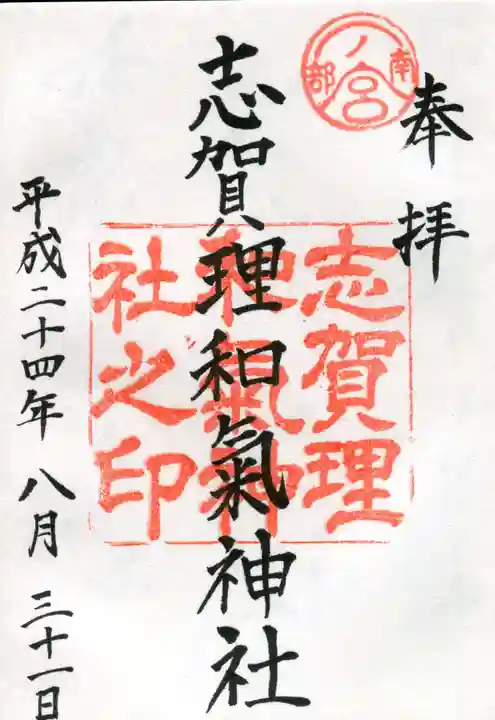 奉拝
南部ノ宮
志賀理和氣神社
志賀理
和氣神
社之印
平成二十四年 八月 三十一日